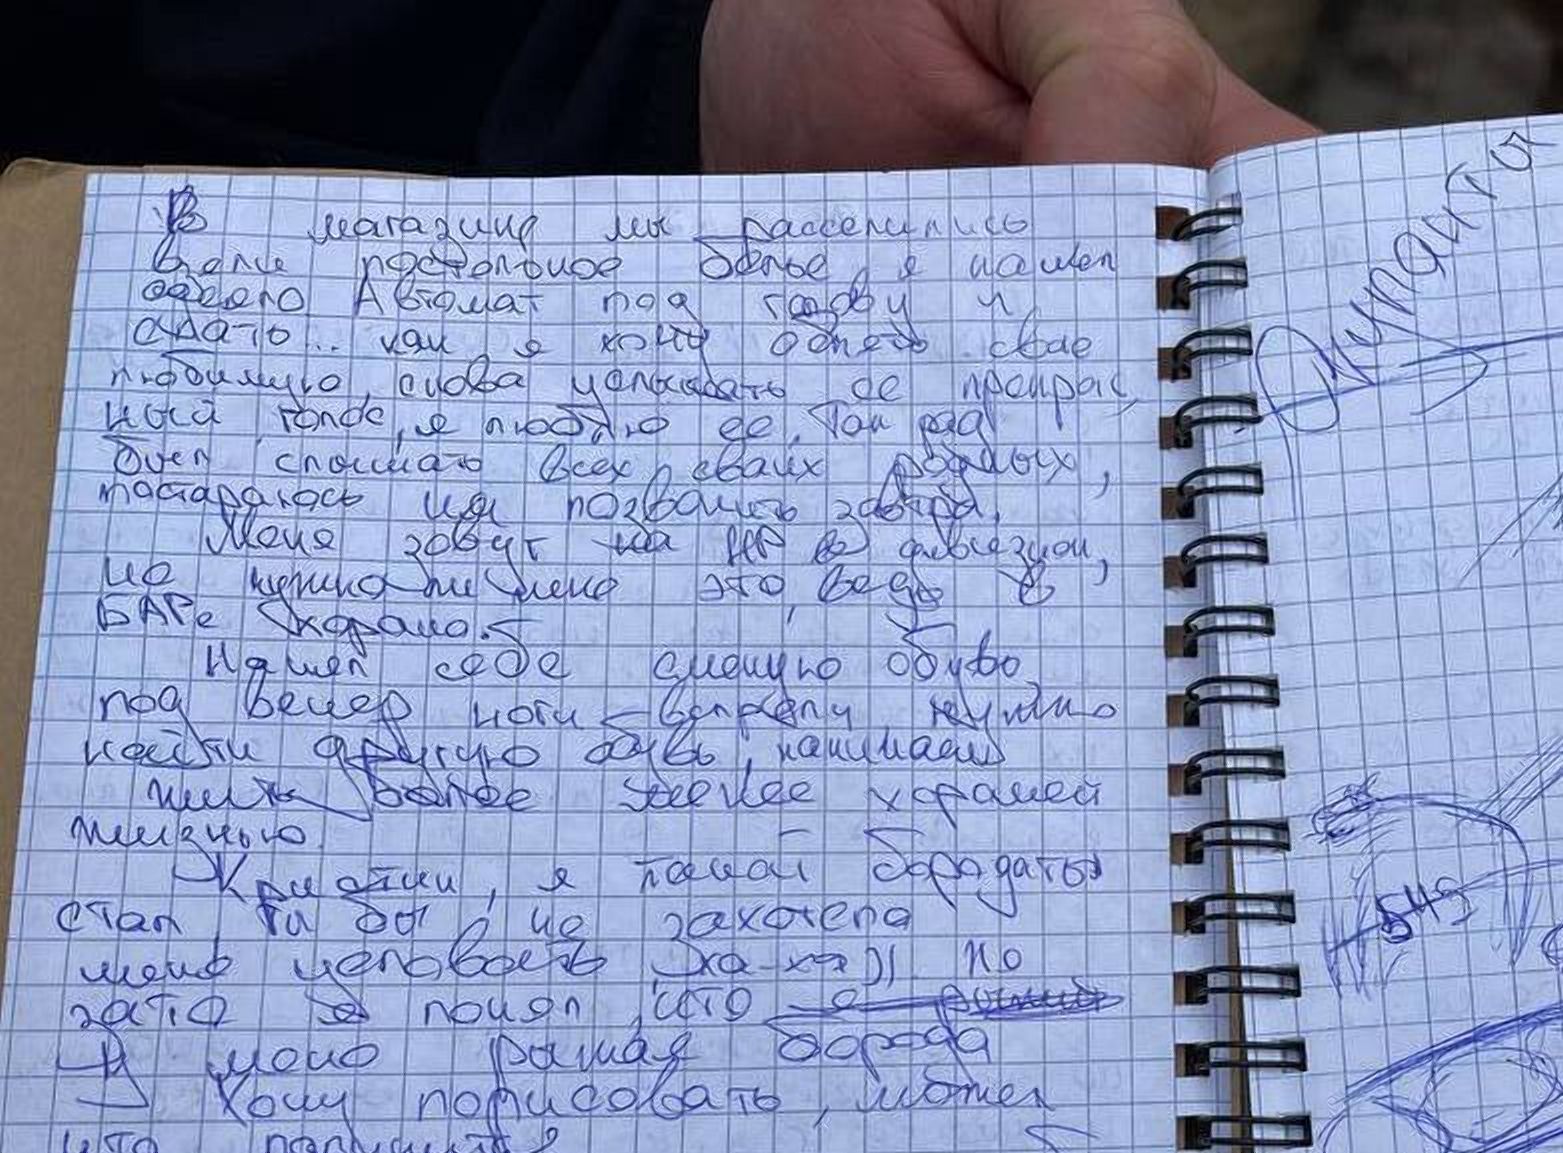 В магазине мы расселились
взяли постельное бельё, я нашел
одеяло. Автомат под голову и
спать... как я хочу обнять свае
любимую, снова услышать ее прекрас
ный голос, я люблю ее. Так рад
был слышать всех сваих родных,
постараюсь им позвонить завтра.
Меня зовут на НП в
но нужно ли мне это, ведь в
БАРе харашо.
Нашел себе сменую обувь
под вечер ноги нужно
найти другую обувь, начинаем
жить более менее харашей
жизнью.
я такой барадаты
стал, ти бы не захотела
меня целовать Эха-ха)). Но
зато я понял, что
У меня рыжая борода
Хочу порисовать, может
что получится
Мурат